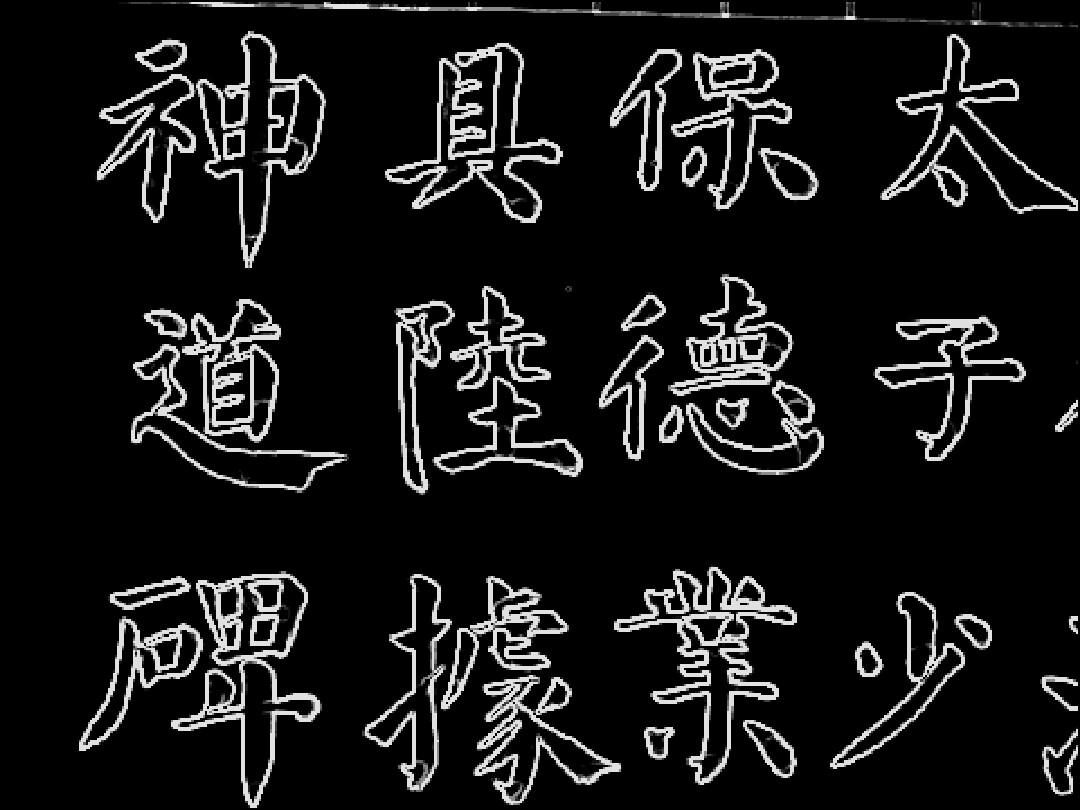 太子少
保德業
具陸據
神道碑